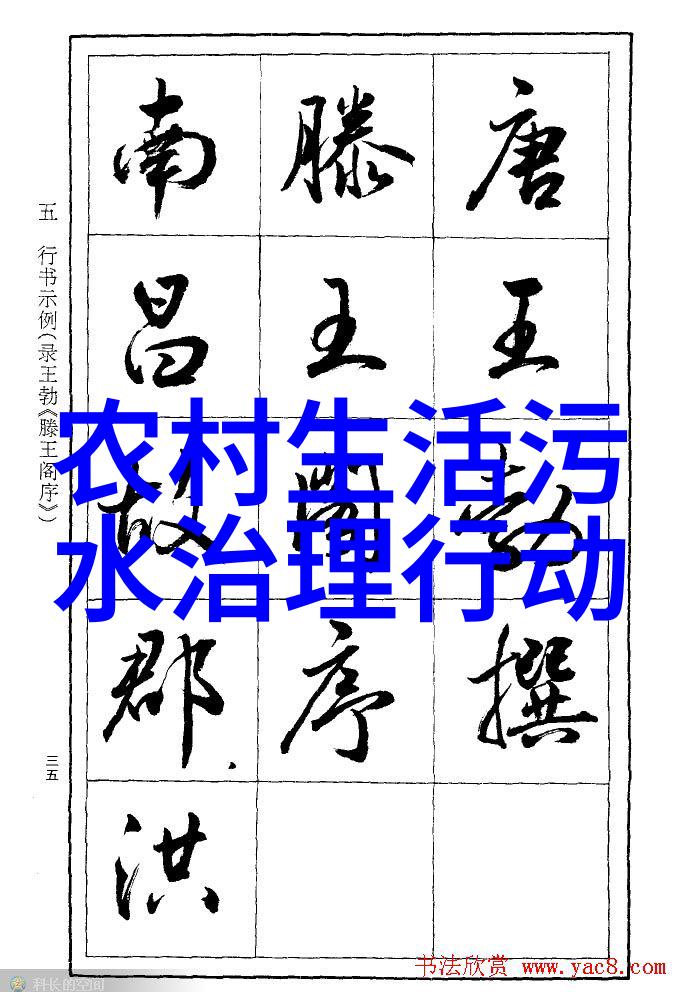 唐王勃撰
滕王閣序
南昌故郡洪
农村生活污
水治理行动
五 行书示例(录王勃《滕王阁序》)
三五
书法欣赏 www.yac8.com
科长的空间